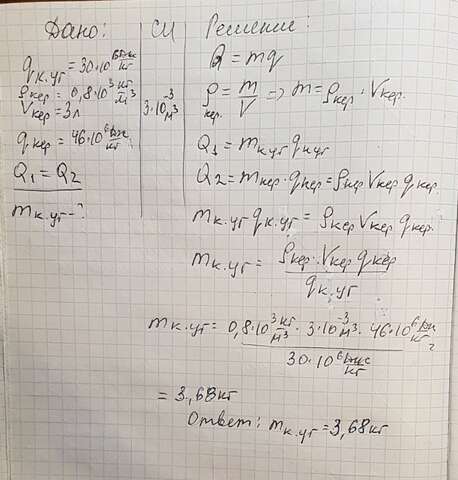 Дано:
q к.уг = 30·10⁶ Дж/кг
ρ кер = 0,8·10³ кг/м³
V кер = 3 л
q кер = 46·10⁶ Дж/кг
Q₁ = Q₂
m к.уг - ?
СИ
3·10⁻³ м³
Решение:
Q = mq
ρ кер. = m/V => m = ρ кер · V кер.
Q₁ = m к.уг q к.уг
Q₂ = m кер · q кер = ρ кер V кер q кер.
m к.уг q к.уг = ρ кер V кер q кер.
m к.уг = ρ кер · V кер q кер / q к.уг
m к.уг = 0,8·10³ кг/м³ · 3·10⁻³ м³ · 46·10⁶ Дж/кг / 30·10⁶ Дж/кг =
= 3,68 кг
Ответ: m к.уг = 3,68 кг